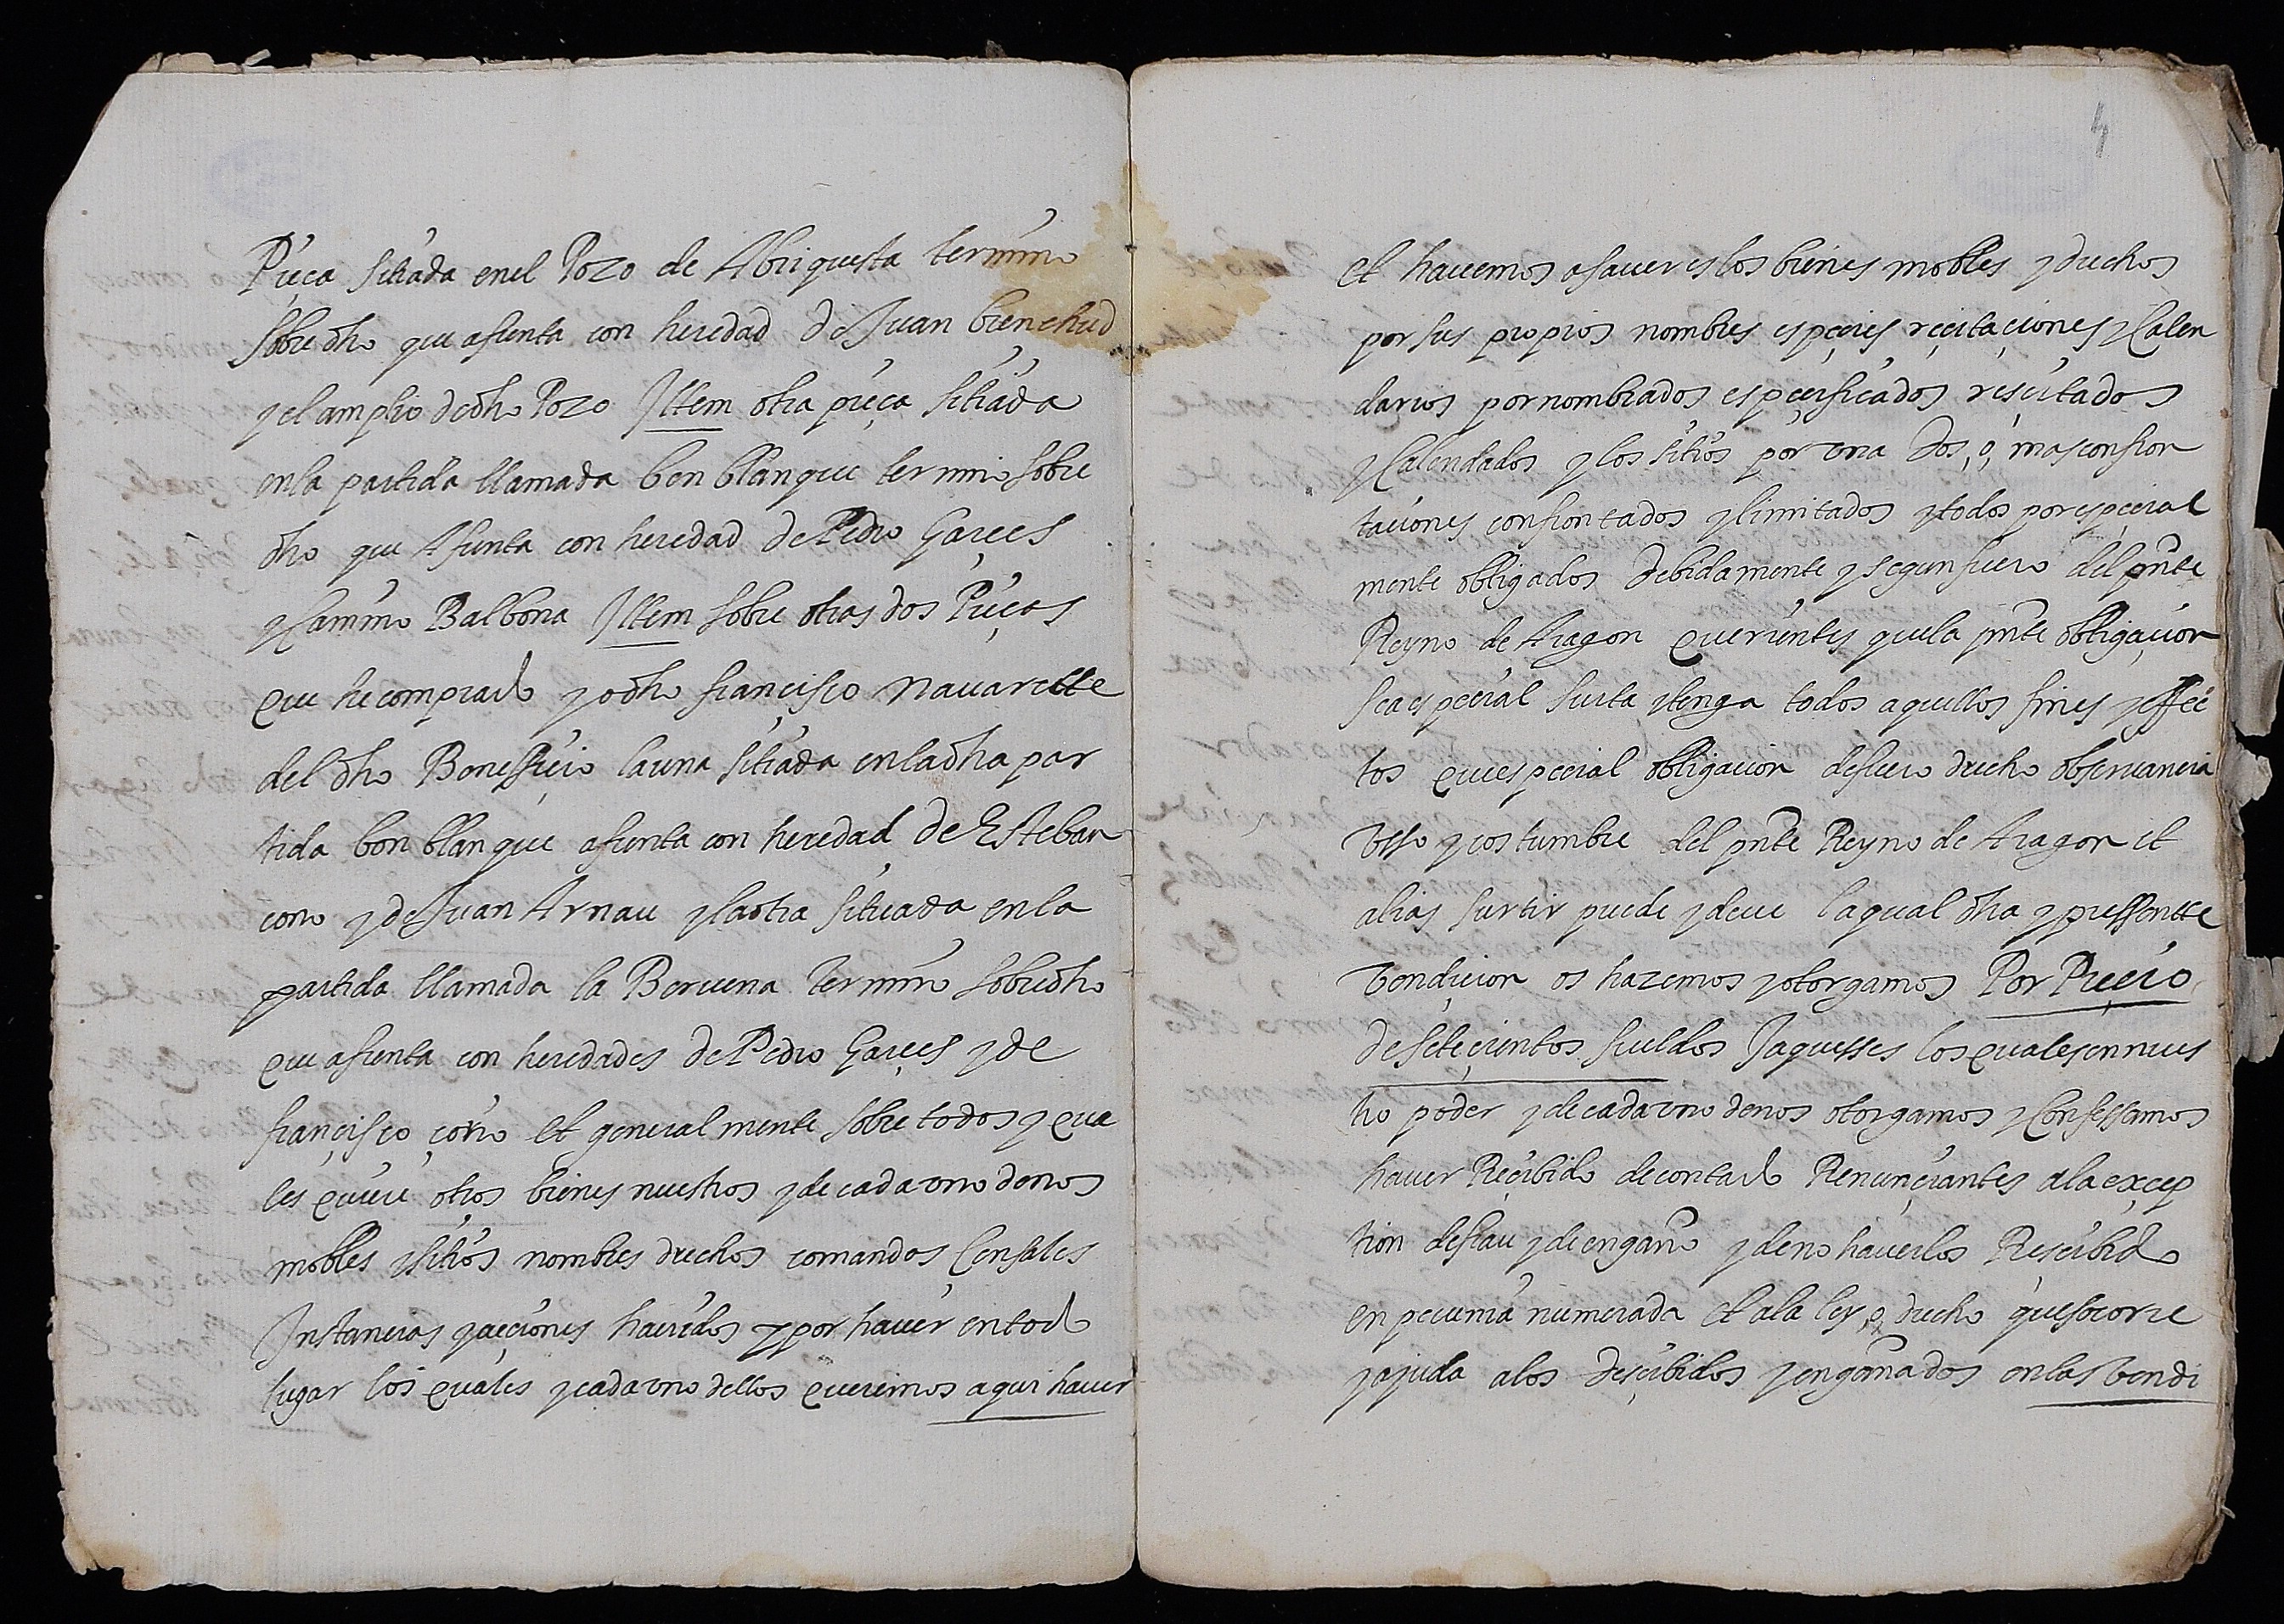 Pieça sitiada en el Pozo de Abriquesta termino
sobredho que afrenta con heredad de Juan bienchud
y el amplio de dho Pozo Ittem otra pieça sitiada
en la partida llamada bon blanque termino sobre
dho que Afrenta con heredad de Pedro Garçes
y Camino Balbona Ittem sobre otras dos Pieças
que he comprado yo dho francisco Nauarette
del dho Beneffiçio la una sitiada en la dha par
tida bon blanque afrenta con heredad de Esteban
corio y de Juan Arnau y la otra sitiada en la
partida llamada la Boruena termino sobredho
que afrenta con heredades de Pedro Garçes y de
françisco corio et generalmente sobre todos y qua
les quiere otros bienes nuestros y de cada uno de nos
mobles y sitios nombres drechos comandos Çensales
Instancias y acçiones hauidos y por hauer en todo
lugar los quales y cada uno dellos queremos aqui hauer
4
et hauemos a sauer es los bienes mobles y drechos
por sus propios nombres espeçies reçitaçiones y Calen
darios por nombrados espeçificados resçitados
y Calendados y los sitios por una dos, o, mas confron
taciones confrontados y limitados y todos por espeçial
mente obligados debidamente y segun fuero del pnte
Reyno de Aragon querientes que la pnte obligaçion
sea espeçial surta y tenga todos aquellos fines y effec
tos que espeçial obligacion de fuero drecho obseruancia
usso y costumbre del pnte Reyno de Aragon et
alias surtir puede y deue la qual dha y pressentte
Vendiçion os hazemos y otorgamos Por Preçio
de seteçientos sueldos Jaquesses los quales en nues
tro poder y de cada uno de nos otorgamos y Confessamos
hauer Reçibido de contado Renunçiantes a la exçep
tion de frau y de engaño y de no hauerlos Resçibido
en pecunia numerada et a la ley, o, drecho que socorre
y ajuda a los desçibidos y engañados en las vendi